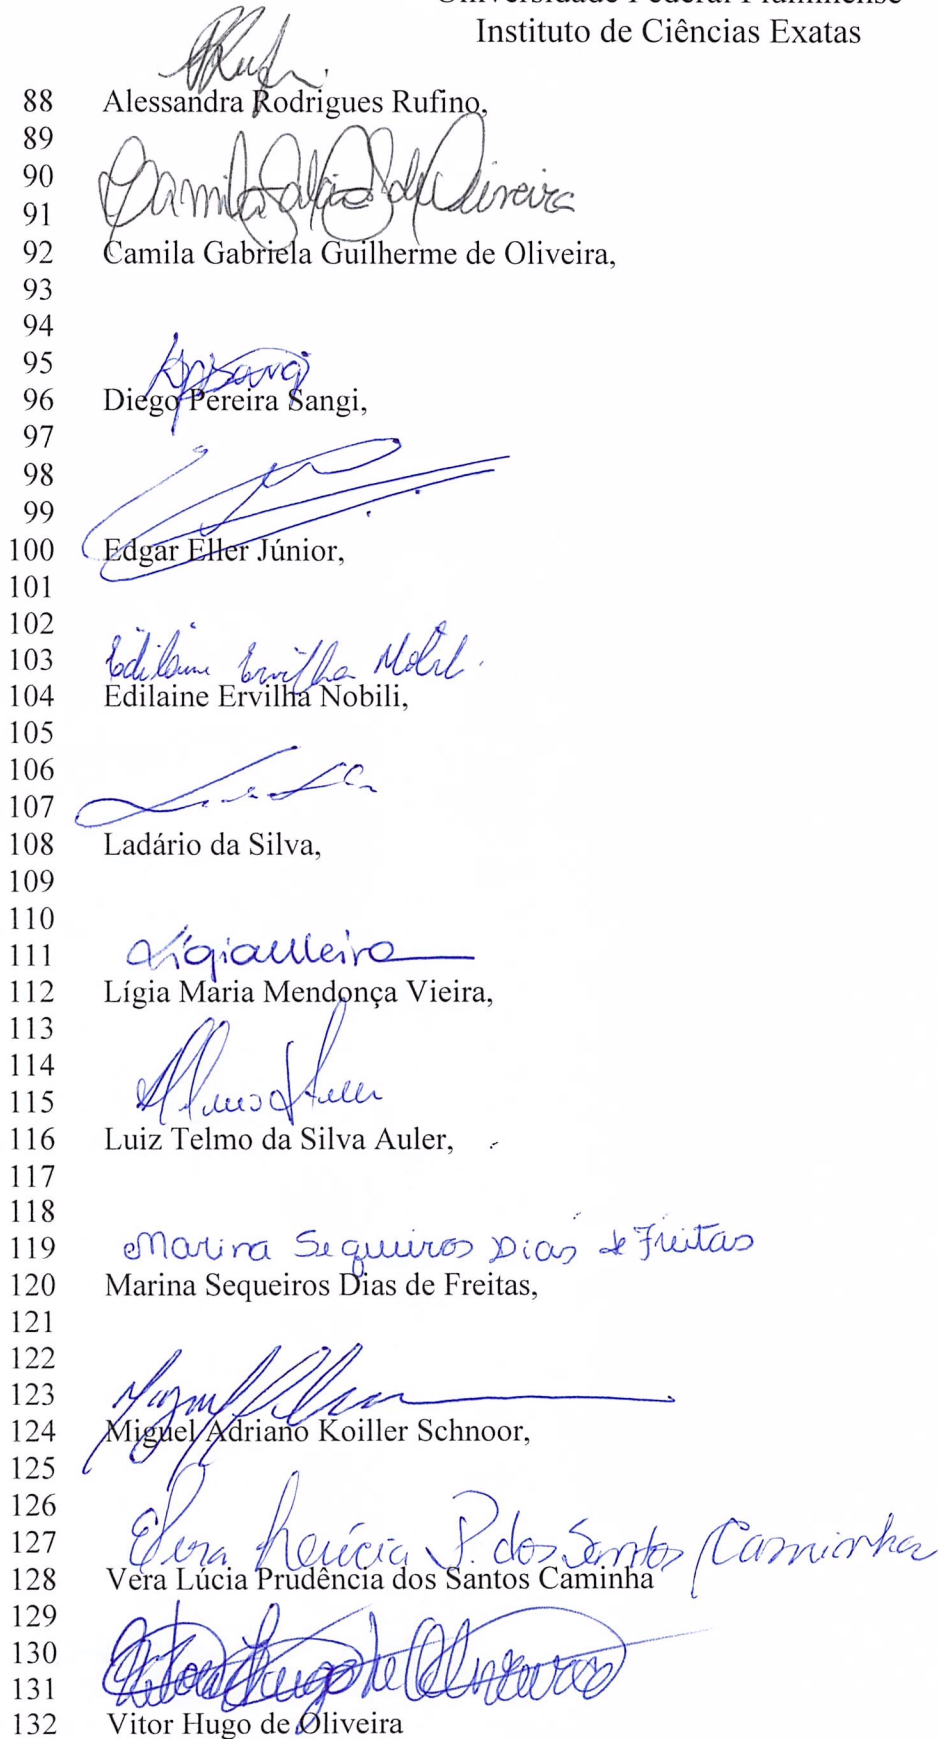 Universidade Federal Fluminense
Instituto de Ciências Exatas
88 Alessandra Rodrigues Rufino,
89
90
91 Camila Gabi G de Oliveira
92 Camila Gabriela Guilherme de Oliveira,
93
94
95 DpSangi
96 Diego Pereira Sangi,
97
98
99
100 Edgar Eller Júnior,
101
102
103 Edilaine Ervilha Nobili
104 Edilaine Ervilha Nobili,
105
106
107
108 Ladário da Silva,
109
110
111 LígiaMVieira
112 Lígia Maria Mendonça Vieira,
113
114
115
116 Luiz Telmo da Silva Auler,
117
118
119 Marina Sequeiros Dias de Freitas
120 Marina Sequeiros Dias de Freitas,
121
122
123 Miguel
124 Miguel Adriano Koiller Schnoor,
125
126
127 Vera Lúcia P. dos Santos Caminha
128 Vera Lúcia Prudência dos Santos Caminha
129
130
131 Vitor Hugo de Oliveira
132 Vitor Hugo de Oliveira